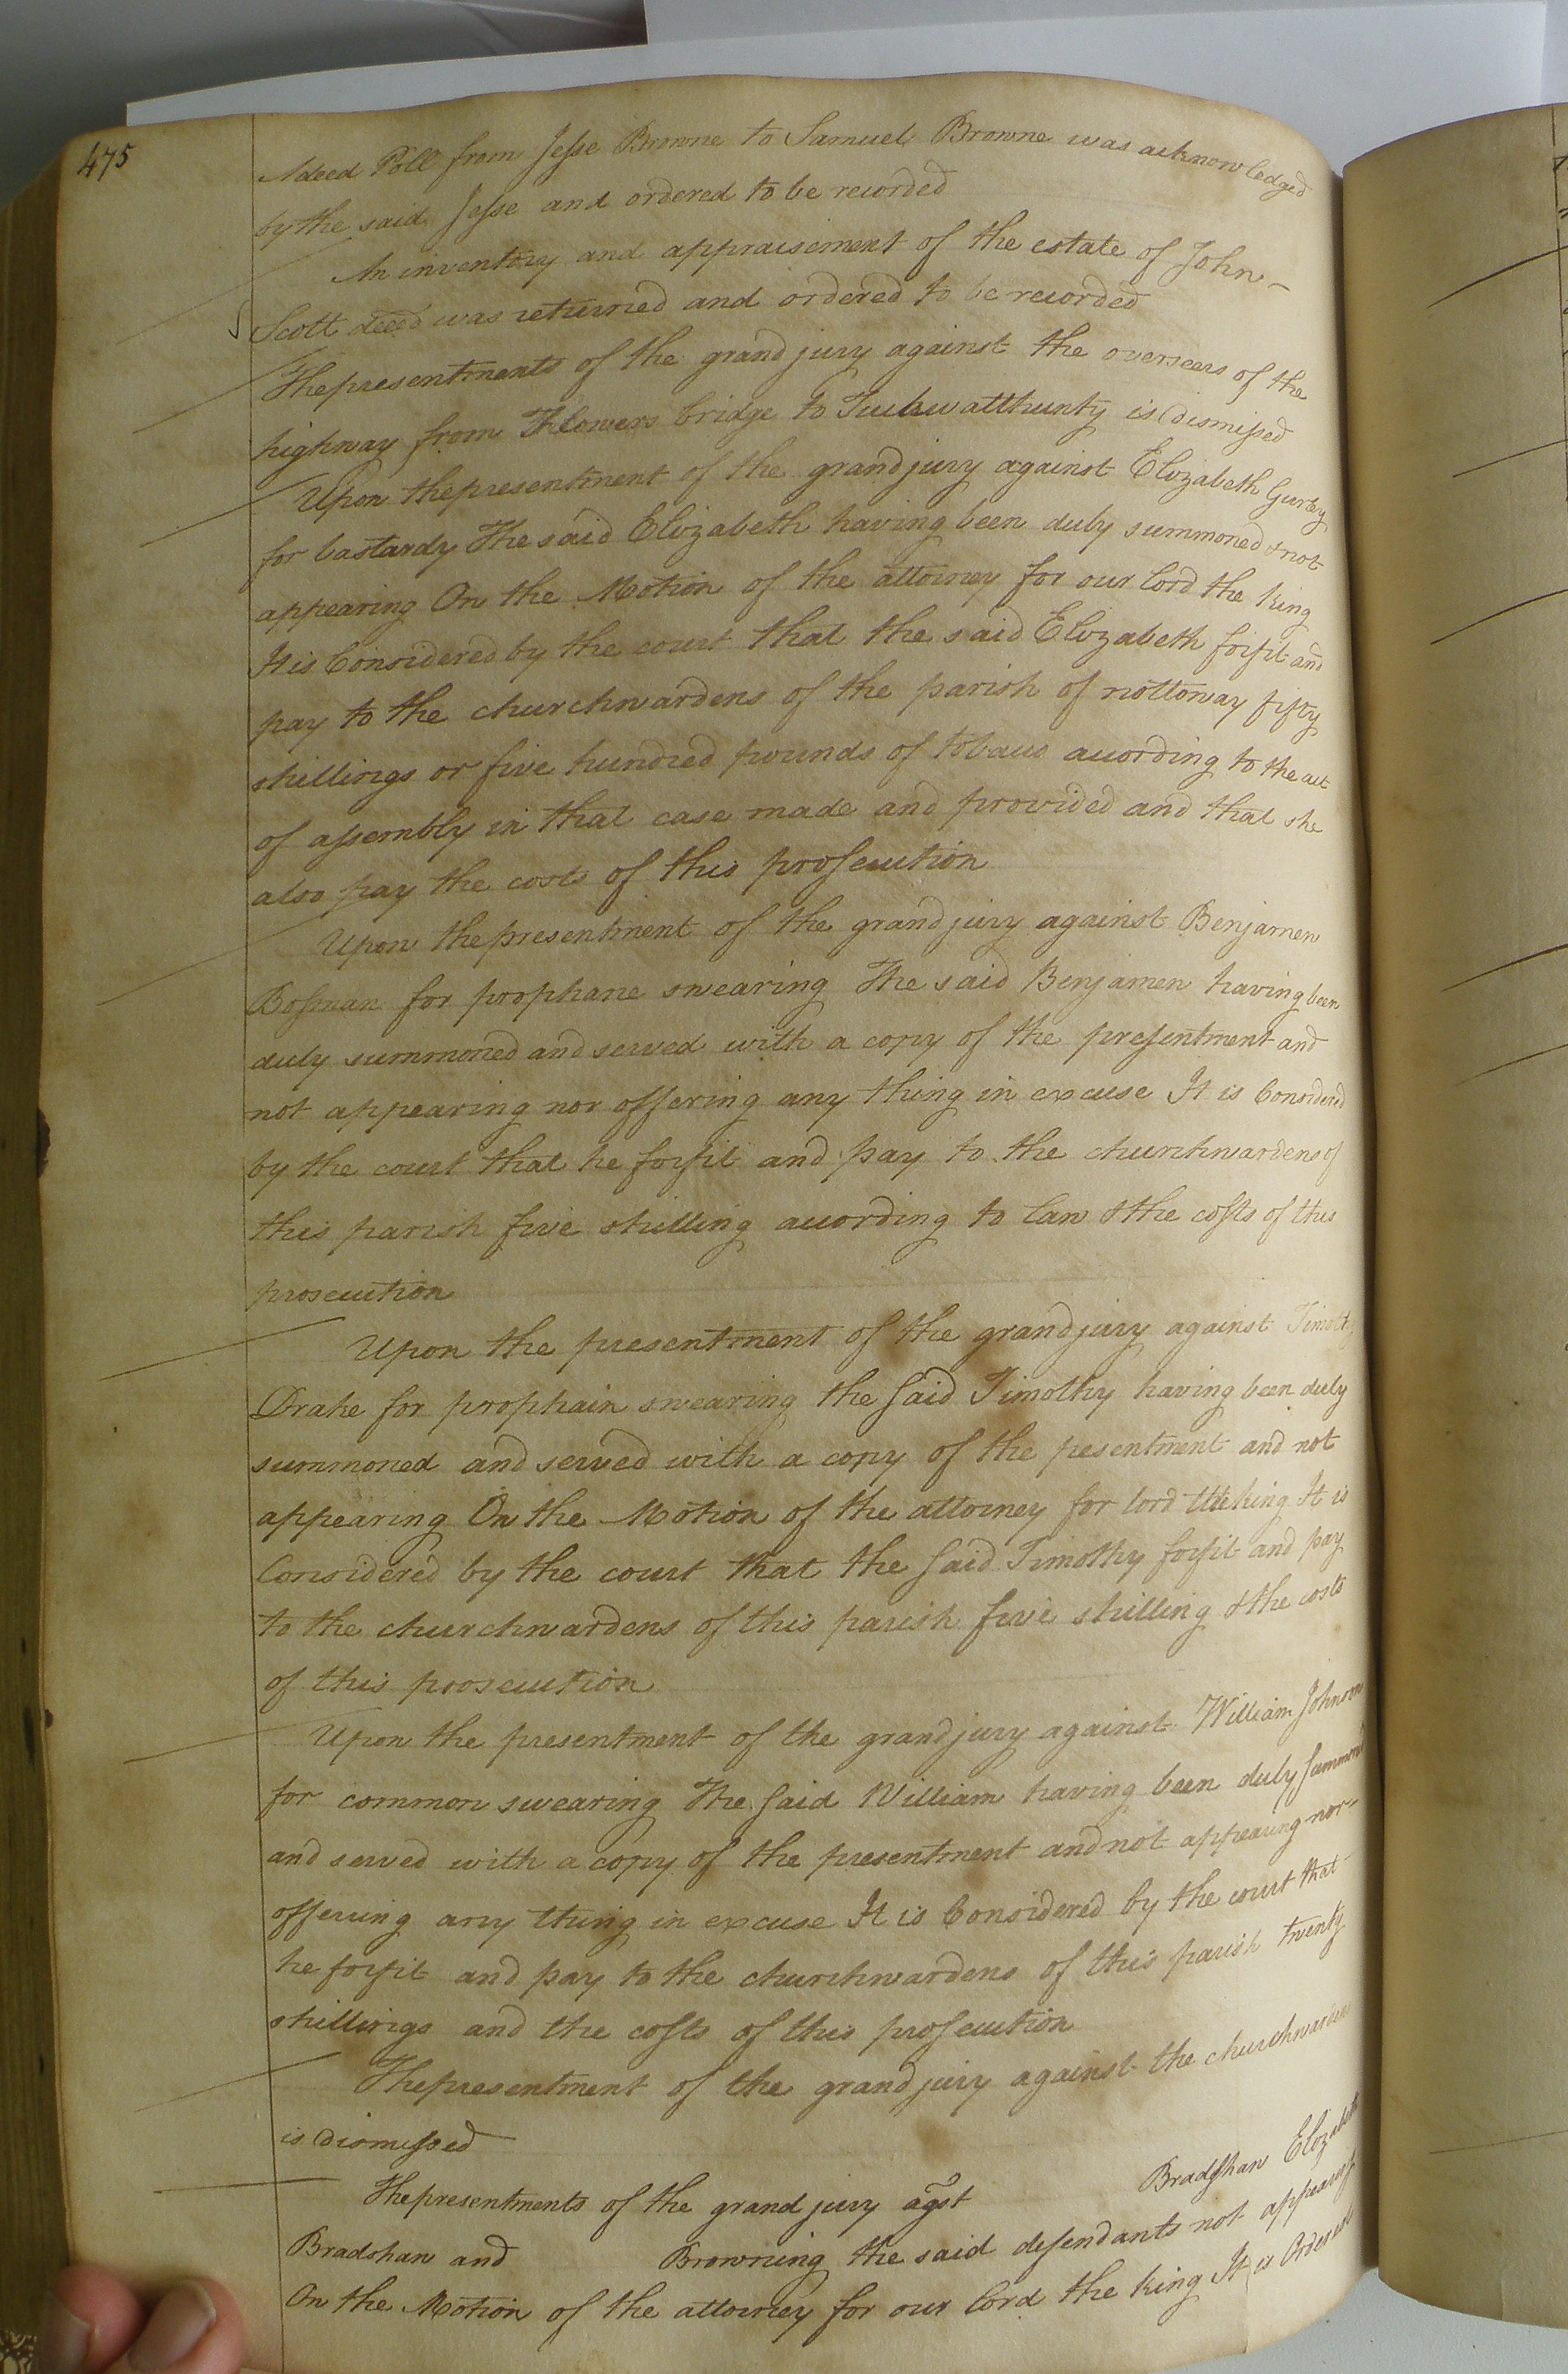 475
A deed Poll from Jesse Browne to Samuel Browne was acknowledged
by the said Jesse and ordered to be recorded
An inventory and appraisement of the estate of John
Scott decd was returned and ordered to be recorded
The presentments of the grand jury against the overseers of the
highway from Flowers bridge to is dismissed
Upon the presentment of the grand jury against Elizabeth Gurley
for bastardy The said Elizabeth having been duly summoned & not
appearing On the Motion of the attorney for our Lord the king
It is Considered by the court that the said Elizabeth forfit and
pay to the churchwardens of the parish of nottoway fifty
shillings or five hundred pounds of tobacco according to the act
of assembly in that case made and provided and that she
also pay the costs of this prosecution
Upon the presentment of the grand jury against Benjamen
for prophane swearing The said Benjamen having been
duly summoned and served with a copy of the presentment and
not appearing nor offering any thing in excuse It is Considered
by the court that he forfit and pay to the churchwardens of
this parish five shilling according to law & the costs of this
prosecution
Upon the presentment of the grand jury against Timothy
Drake for prophain swearing the said Timothy having been duly
summoned and served with a copy of the pesentment and not
appearing On the Motion of the attorney for lord the king It is
Considered by the court that the said Timothy forfit and pay
to the churchwardens of this parish five shilling & the costs
of this prosecution
Upon the presentment of the grand jury against William Johnson
for common swearing The said William having been duly summond
and served with a copy of the presentment and not appearing nor
offering any thing in excuse It is Considered by the court that
he forfit and pay to the churchwardens of this parish twenty
shillings and the costs of this prosecution
The presentment of the grand jury against the churchwardens
is dismissed
The presentments of the grand jury agst Bradshaw Elizabeth
Bradshaw and Browning the said defendants not appearing
On the Motion of the attorney for our Lord the king It is Ordered